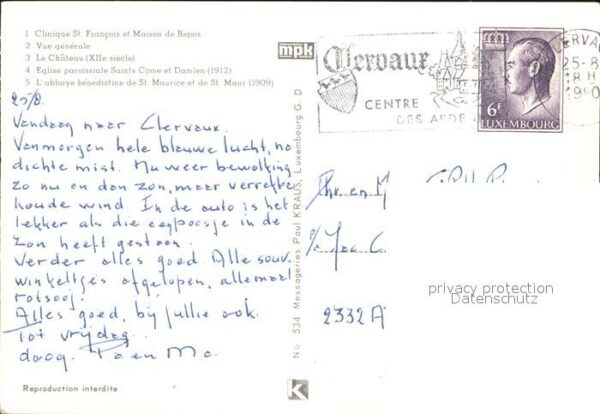 1 Clinique St. François et Maison de Repos
2 Vue générale
3 Le Château (XIIe siècle)
4 Eglise paroissiale Saints Come et Damien (1912)
5 L'abbaye bénédictine de St. Maurice et de St. Maur (1909)
mpk
Clervaux
CENTRE
DES ARDE
CLERVAU
25-8
18H
190
6F
LUXEMBOURG
25/8.
Vandaag naar Clervaux.
Vanmorgen hele blauwe lucht, na
dichte mist. Nu weer bewolking
zo nu en dan zon, maar
koude wind. In de auto is het
lekker als die een poosje in de
zon heeft gestaan.
Verder alles goed. Alle souv.
winkeltjes afgelopen, allemaal
Alles goed, bij jullie ook.
Tot vrijdag.
daag. Pa en Ma.
2332 A
No 534 Messageries Paul KRAUS, Luxembourg G. D
privacy protection
Datenschutz
Reproduction interdite
K